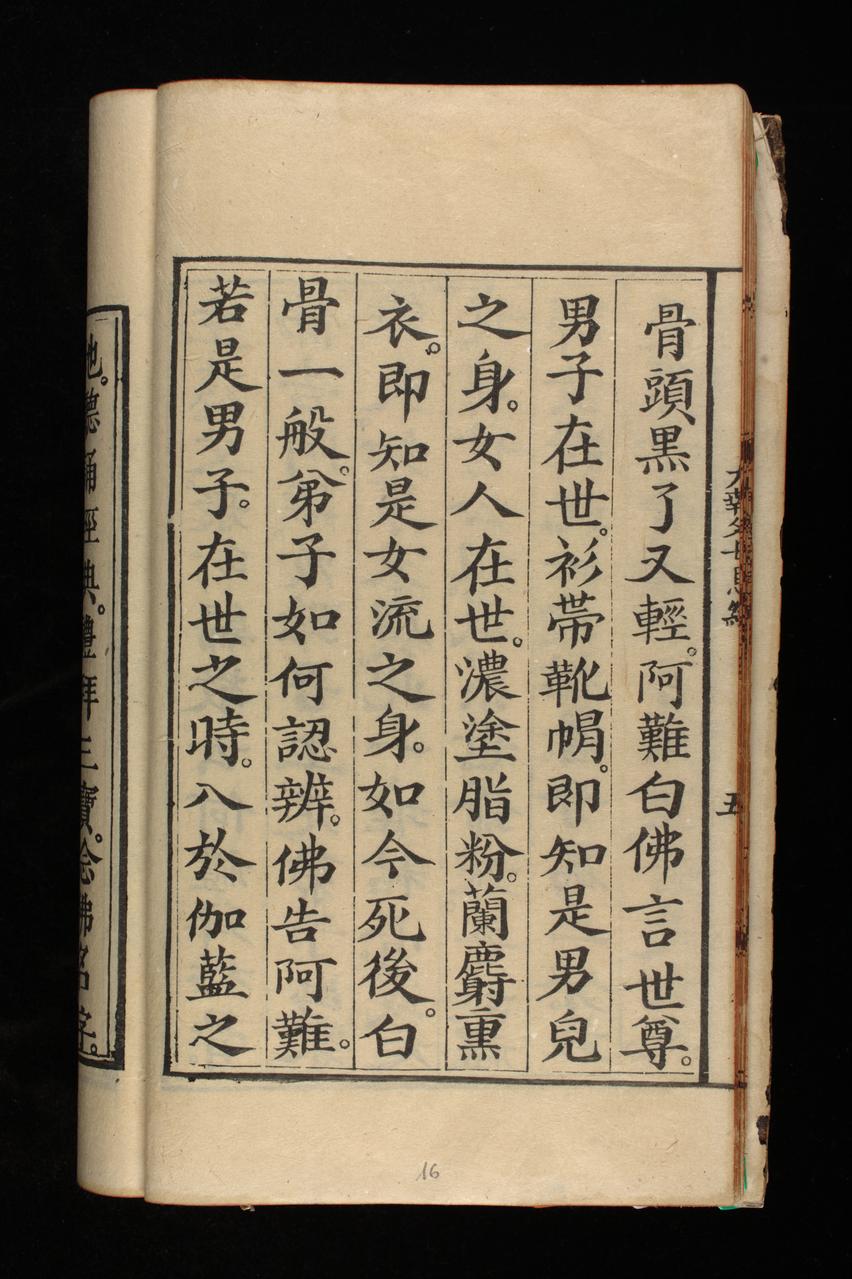 骨頭黒了又輕。阿難白佛言世尊。
男子在世。衫帶靴帽。即知是男兒
之身。女人在世。濃塗脂粉。蘭麝熏
衣。即知是女流之身。如今死後。白
骨一般。弟子如何認辨。佛告阿難。
若是男子。在世之時。入於伽藍之
五
聽誦經典。禮拜三寶。念佛名字。
16